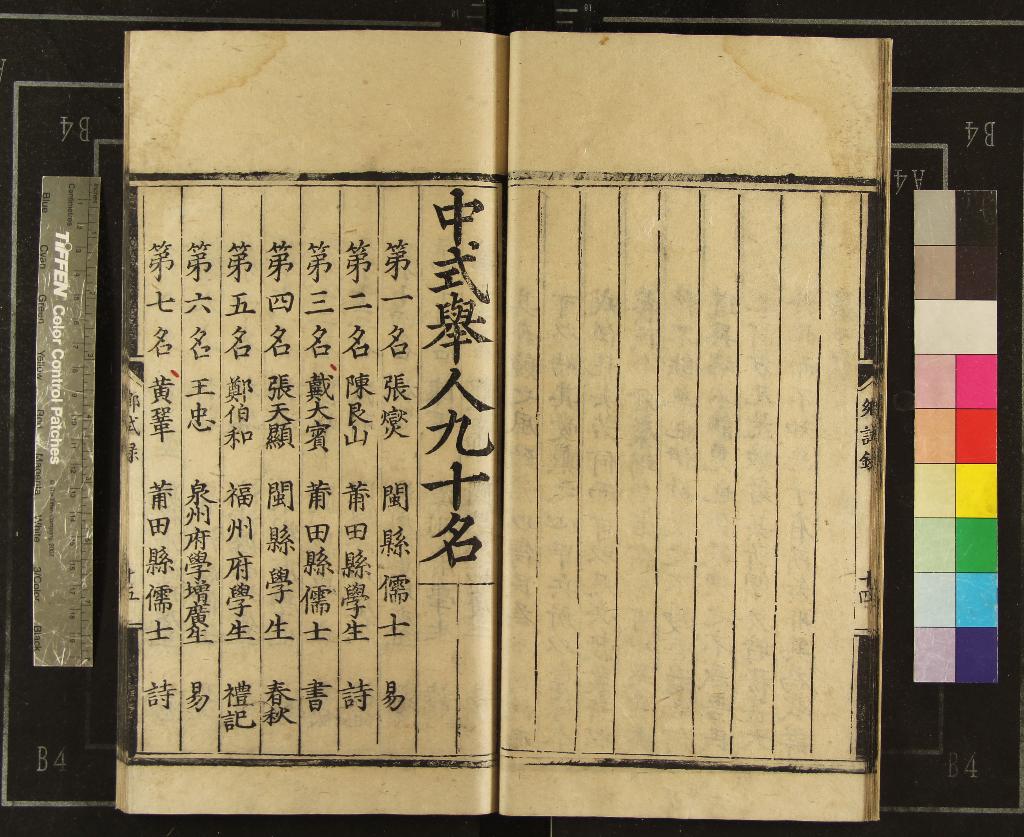 鄉試錄
十四
中式舉人九十名
第一名 張燮 閩縣儒士 易
第二名 陳艮山 莆田縣學生 詩
第三名 戴大賓 莆田縣儒士 書
第四名 張天顯 閩縣學生 春秋
第五名 鄭伯和 福州府學生 禮記
第六名 王忠 泉州府學增廣生 易
第七名 黃鞏 莆田縣儒士 詩
鄉試录
十五
TIFFEN Color Control Patches
Blue Cyan Green Yellow Red Magenta White 3/Color Black
Centimetres
B4
B4
A4
B4
B4